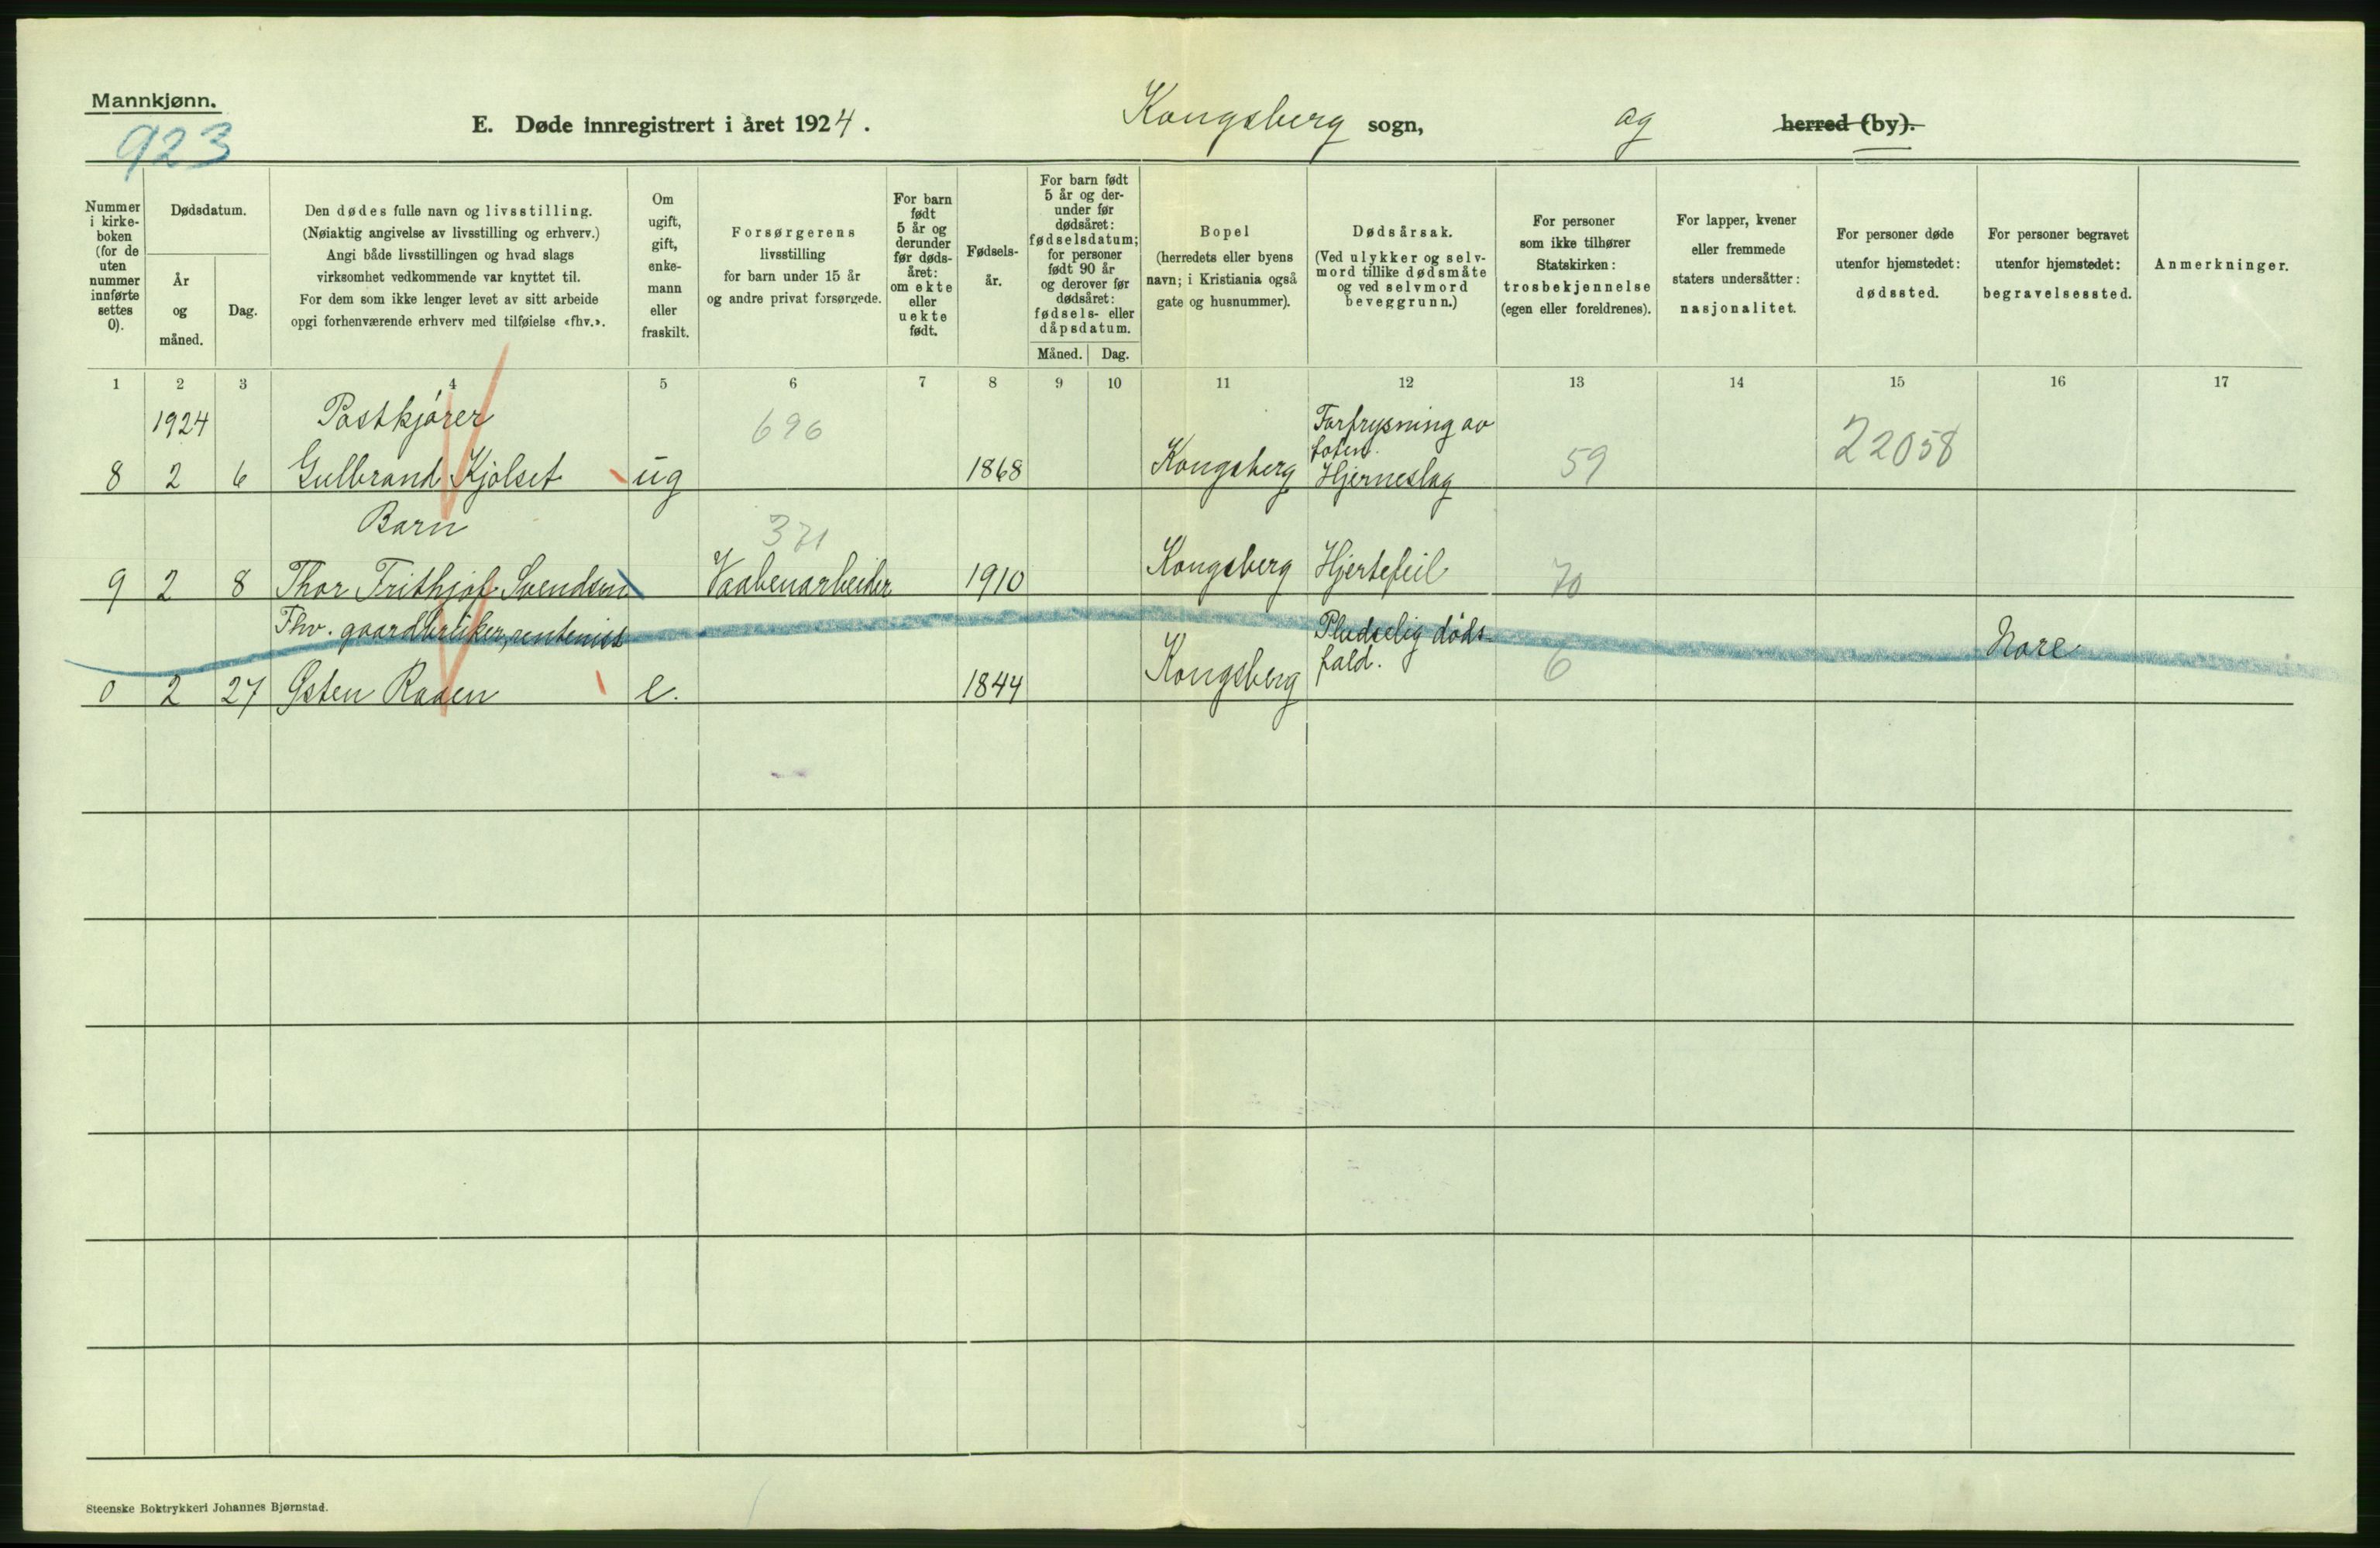 Mannkjønn.
923
E. Døde innregistrert i året 1924. Kongsberg sogn, og herred (by).
Nummer i kirke-boken (for de uten nummer innførte settes 0).
Dødsdatum.
År og måned.
Dag.
Den dødes fulle navn og livsstilling.
(Nøiaktig angivelse av livsstilling og erhverv.)
Angi både livsstillingen og hvad slags
virksomhet vedkommende var knyttet til.
For dem som ikke lenger levet av sitt arbeide
opgi forhenværende erhverv med tilføielse «fhv.».
Om
ugift,
gift,
enke-
mann
eller
fraskilt.
Forsørgerens
livsstilling
for barn under 15 år
og andre privat forsørgede.
For barn
født
5 år og
derunder
før døds-
året:
om ekte
eller
uekte
født.
Fødsels-
år.
For barn født
5 år og der-
under før
dødsåret:
fødselsdatum;
for personer
født 90 år
og derover før
dødsåret:
fødsels- eller
dåpsdatum.
Måned. Dag.
Bopel
(herredets eller byens
navn; i Kristiania også
gate og husnummer).
Dødsårsak.
(Ved ulykker og selv-
mord tillike dødsmåte
og ved selvmord
beveggrunn.)
For personer
som ikke tilhører
Statskirken:
trosbekjennelse
(egen eller foreldrenes).
For lapper, kvener
eller fremmede
staters undersåtter:
nasjonalitet.
For personer døde
utenfor hjemstedet:
dødssted.
For personer begravet
utenfor hjemstedet:
begravelsessted.
Anmerkninger.
1 2 3 4 5 6 7 8 9 10 11 12 13 14 15 16 17
1924 Postkjører 696 Forfrysning av
foten.
8 2 6 Gulbrand Kjølset ug 1868 Kongsberg Hjerneslag 59 22058
Barn 371
9 2 8 Thor Frithjof Svendsen Vaabenarbeider 1910 Kongsberg Hjertefeil 70
Fhv. gaardbruker, Pludselig døds-
fald. 6 Nore
0 2 27 Østen Raaen e. 1844 Kongsberg
Steenske Boktrykkeri Johannes Bjørnstad.